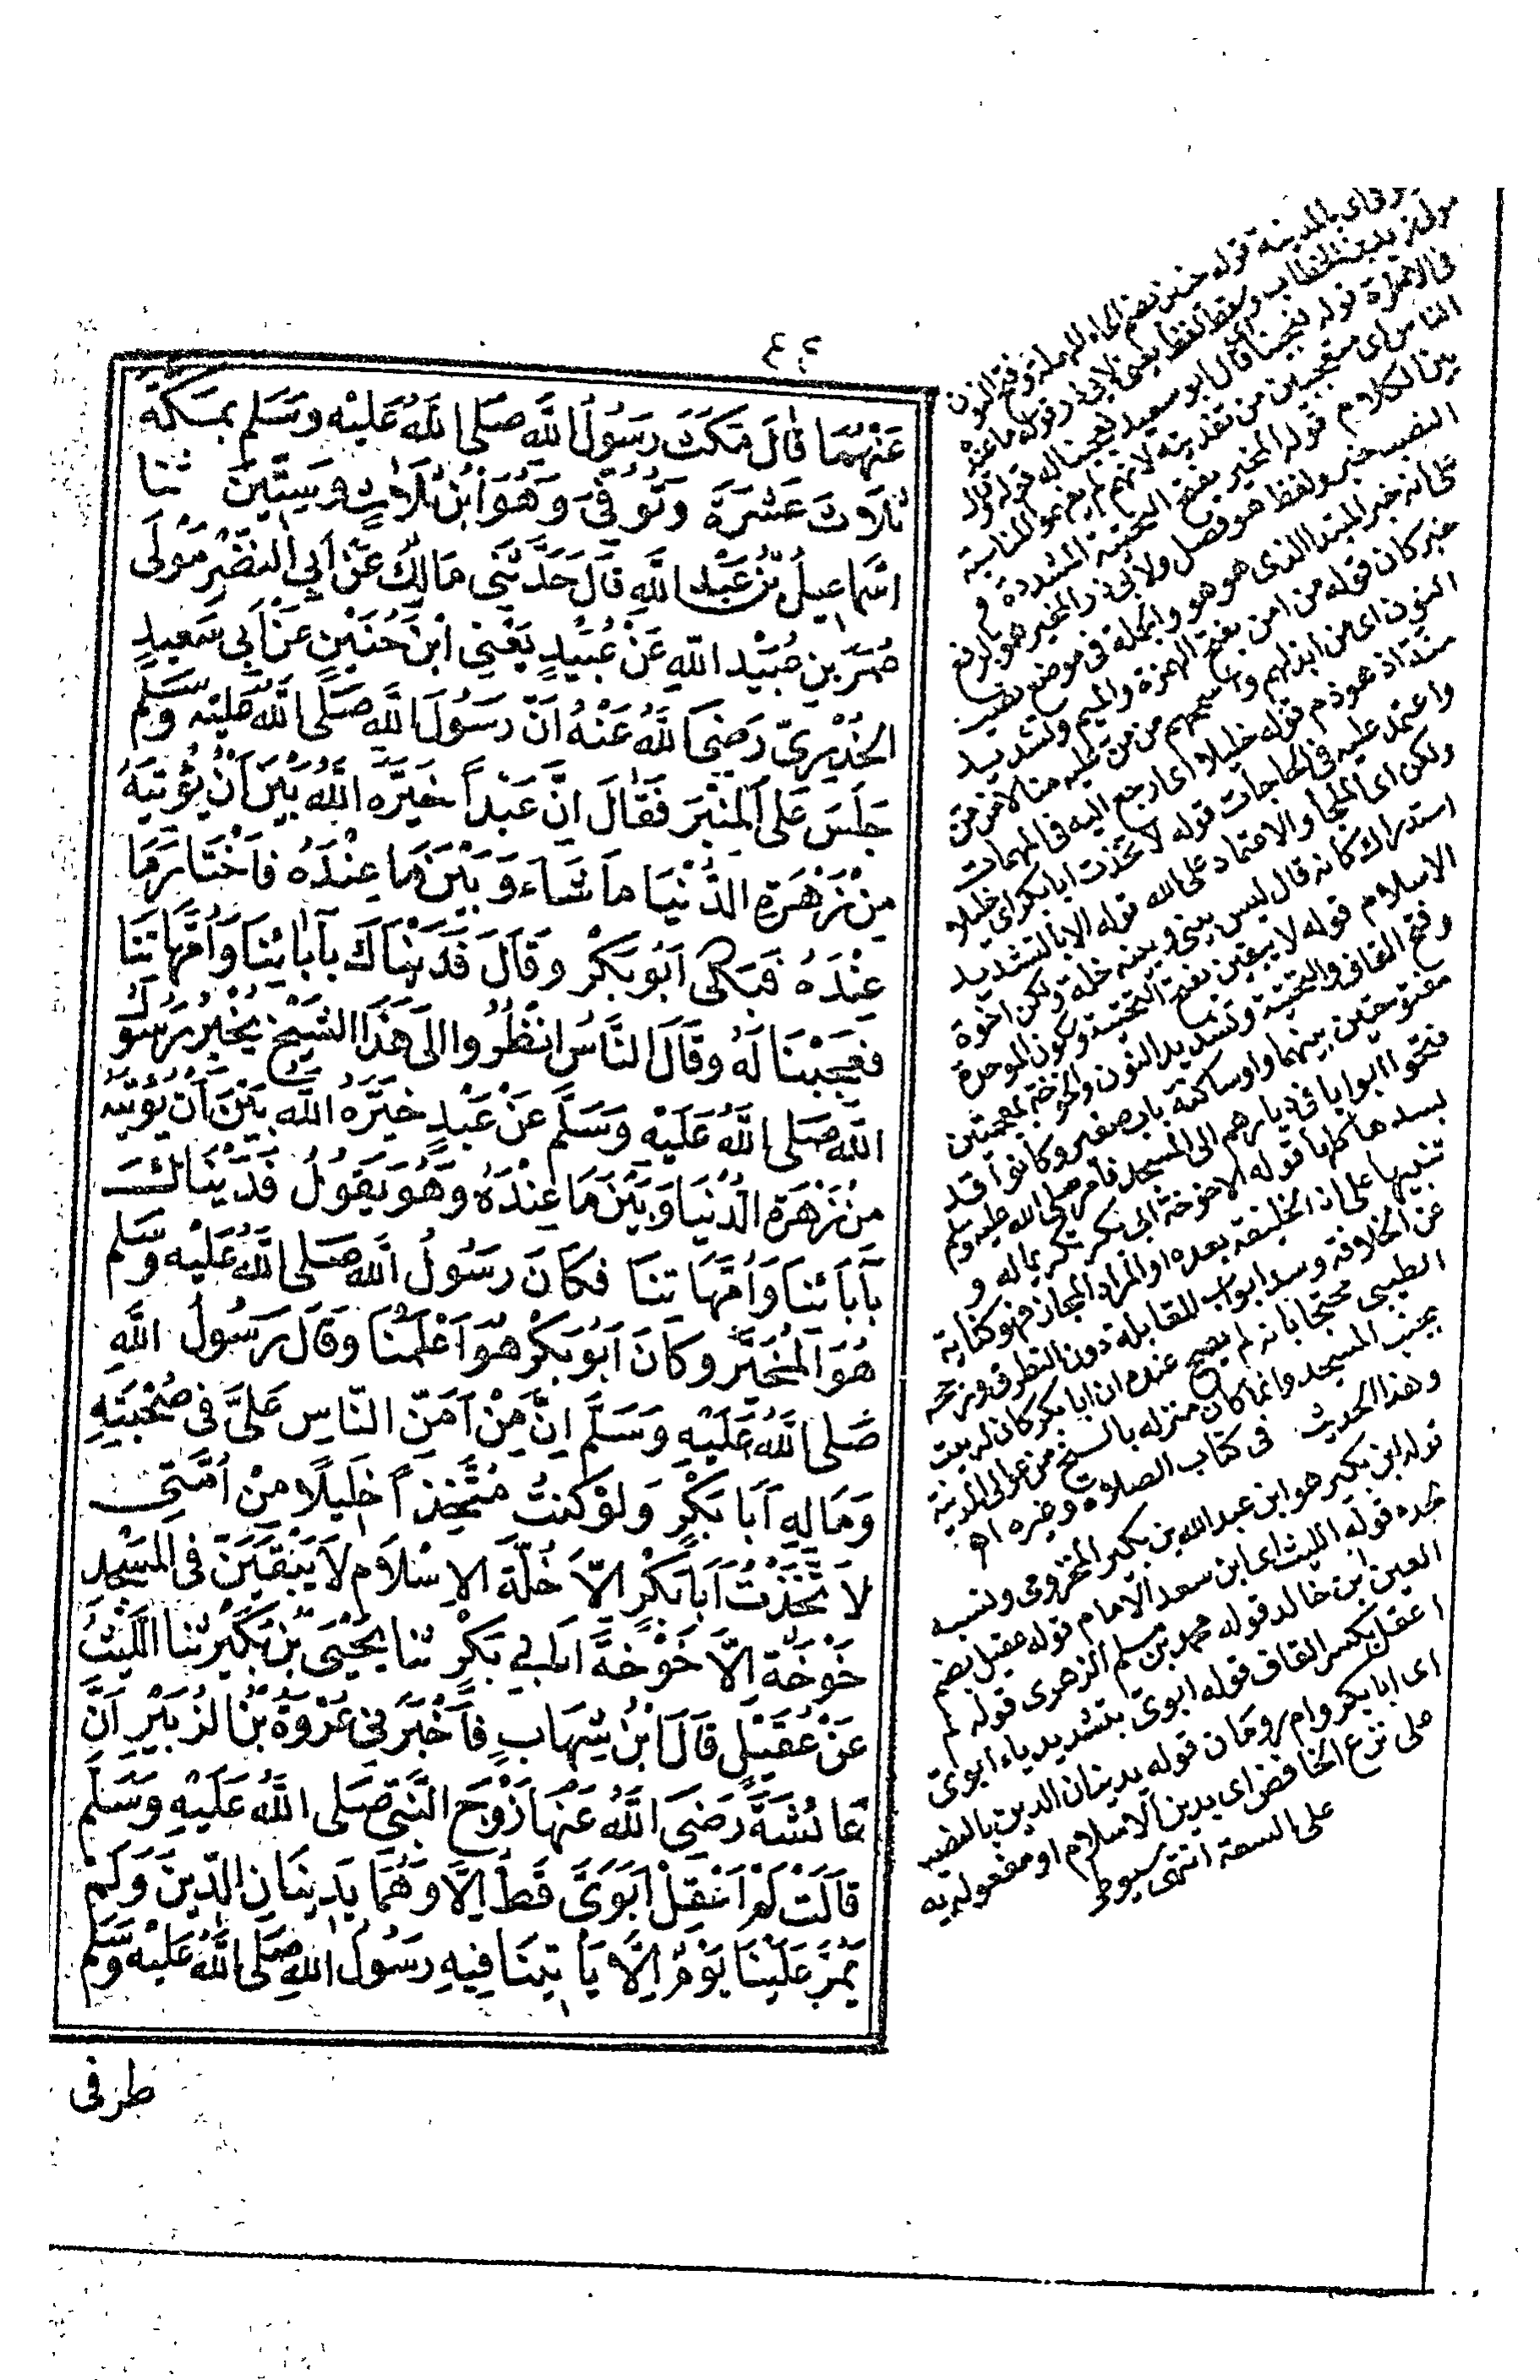 ٤٠٢
عَنْهُمَا قَالَ مَكَثَ رَسُولُ اللَّهِ صَلَّى اللَّهُ عَلَيْهِ وَسَلَّمَ بِمَكَّةَ
ثَلَاثَ عَشْرَةَ وَتُوُفِّيَ وَهُوَ ابْنُ ثَلَاثٍ وَسِتِّينَ ثنا
اِسْمَاعِيلُ بْنُ عَبْدِ اللَّهِ قَالَ حَدَّثَنِي مَالِكٌ عَنْ أَبِي النَّضْرِ مَوْلَى
عُمَرَ بْنِ عُبَيْدِ اللَّهِ عَنْ عُبَيْدٍ يَعْنِي ابْنَ حُنَيْنٍ عَنْ أَبِي سَعِيدٍ
الْخُدْرِيِّ رَضِيَ اللَّهُ عَنْهُ أَنَّ رَسُولَ اللَّهِ صَلَّى اللَّهُ عَلَيْهِ وَسَلَّمَ
جَلَسَ عَلَى الْمِنْبَرِ فَقَالَ إِنَّ عَبْداً خَيَّرَهُ اللَّهُ بَيْنَ أَنْ يُؤْتِيَهُ
مِنْ زَهْرَةِ الدُّنْيَا مَا شَاءَ وَبَيْنَ مَا عِنْدَهُ فَاخْتَارَ مَا
عِنْدَهُ فَبَكَى أَبُو بَكْرٍ وَقَالَ فَدَيْنَاكَ بِآبَائِنَا وَأُمَّهَاتِنَا
فَعَجِبْنَا لَهُ وَقَالَ النَّاسُ انْظُرُوا إِلَى هَذَا الشَّيْخِ يُخْبِرُ رَسُولُ
اللَّهِ صَلَّى اللَّهُ عَلَيْهِ وَسَلَّمَ عَنْ عَبْدٍ خَيَّرَهُ اللَّهُ بَيْنَ أَنْ يُؤْتِيَهُ
مِنْ زَهْرَةِ الدُّنْيَا وَبَيْنَ مَا عِنْدَهُ وَهُوَ يَقُولُ فَدَيْنَاكَ
بِآبَائِنَا وَأُمَّهَاتِنَا فَكَانَ رَسُولُ اللَّهِ صَلَّى اللَّهُ عَلَيْهِ وَسَلَّمَ
هُوَ الْمُخَيَّرَ وَكَانَ أَبُو بَكْرٍ هُوَ أَعْلَمُنَا وَقَالَ رَسُولُ اللَّهِ
صَلَّى اللَّهُ عَلَيْهِ وَسَلَّمَ إِنَّ مِنْ أَمَنِّ النَّاسِ عَلَيَّ فِي صُحْبَتِهِ
وَمَالِهِ أَبَا بَكْرٍ وَلَوْ كُنْتُ مُتَّخِذاً خَلِيلًا مِنْ أُمَّتِي
لَاتَّخَذْتُ أَبَا بَكْرٍ إِلَّا خُلَّةَ الْإِسْلَامِ لَا يَبْقَيَنَّ فِي الْمَسْجِدِ
خَوْخَةٌ إِلَّا خَوْخَةَ أَبِي بَكْرٍ ثنا يَحْيَى بْنُ بُكَيْرٍ ثنا اللَّيْثُ
عَنْ عُقَيْلٍ قَالَ ابْنُ شِهَابٍ فَأَخْبَرَنِي عُرْوَةُ بْنُ الزُّبَيْرِ أَنَّ
عَائِشَةَ رَضِيَ اللَّهُ عَنْهَا زَوْجَ النَّبِيِّ صَلَّى اللَّهُ عَلَيْهِ وَسَلَّمَ
قَالَتْ لَمْ أَعْقِلْ أَبَوَيَّ قَطُّ إِلَّا وَهُمَا يَدِينَانِ الدِّينَ وَلَمْ
يَمُرَّ عَلَيْنَا يَوْمٌ إِلَّا يَأْتِينَا فِيهِ رَسُولُ اللَّهِ صَلَّى اللَّهُ عَلَيْهِ وَسَلَّمَ
طرفي
بالمدينة قوله حنين بضم الحاء المهملة وفتح النون
مولى زيد بن الخطاب وسقط لفظ يعني لابي ذر قوله ما عنده
في الآخرة قوله فعجبنا قال ابو سعيد فعجبنا له قوله وقال
الناس اى متعجبين من تفديته لانهم لم يفهموا المناسبة
بين الكلام قوله المخير بفتح التحتية المشددة و
النصب خبر ولفظ هو فصل ولابي ذر المخير هو بالرفع
على انه خبر المبتدا الذى هو هو والجملة في موضع نصب
خبر كان قوله من امن بفتح الهمزة والميم وتشديد
النون اى من ابذلهم واسمحهم من من عليه منا لا من من
منة اذ هو ذم قوله خليلا اى ارجع اليه في المهمات
واعتمد عليه في الحاجات قوله لاتخذت ابا بكر اى خليلا
ولكن اى الملجأ والاعتماد على الله قوله الا بالتشديد
استدراك كانه قال ليس بيني وبينه خلة ولكن اخوة
الاسلام قوله لا يبقين بفتح التحتية وسكون الموحدة
وفتح القاف والتحتية وتشديد النون والخوخة بمعجمتين
مفتوحتين بينهما واو ساكنة باب صغير وكانوا قد
فتحوا ابوابا في ديارهم الى المسجد فامر صلى الله عليه وسلم
بسدها كلها قوله الا خوخة ابي بكر تكريما له و
تنبيها على انه الخليفة بعده او المراد المجاز فهو كناية
عن الخلافة وسد ابواب المقابلة دون التطرق ورجحه
الطيبي محتجا بانه لم يصح عنده ان ابا بكر كان له بيت
بجنب المسجد وانما كان منزله بالسنح من عوالي المدينة
وهذا الحديث في كتاب الصلاة وغيره اهـ
قوله ابن بكير هو ابن عبد الله بن بكير المخزومي ونسبه
لجده قوله الليث اى ابن سعد الامام قوله عقيل بضم
العين ابن خالد قوله محمد بن مسلم الزهرى قوله لم
اعقل بكسر القاف قوله ابوى بتشديد ياء ابوى
اى ابا بكر وام رومان قوله يدينان الدين بالنصب
على نزع الخافض اى بدين الاسلام او مفعول به
على السعة انتهى سيوطى